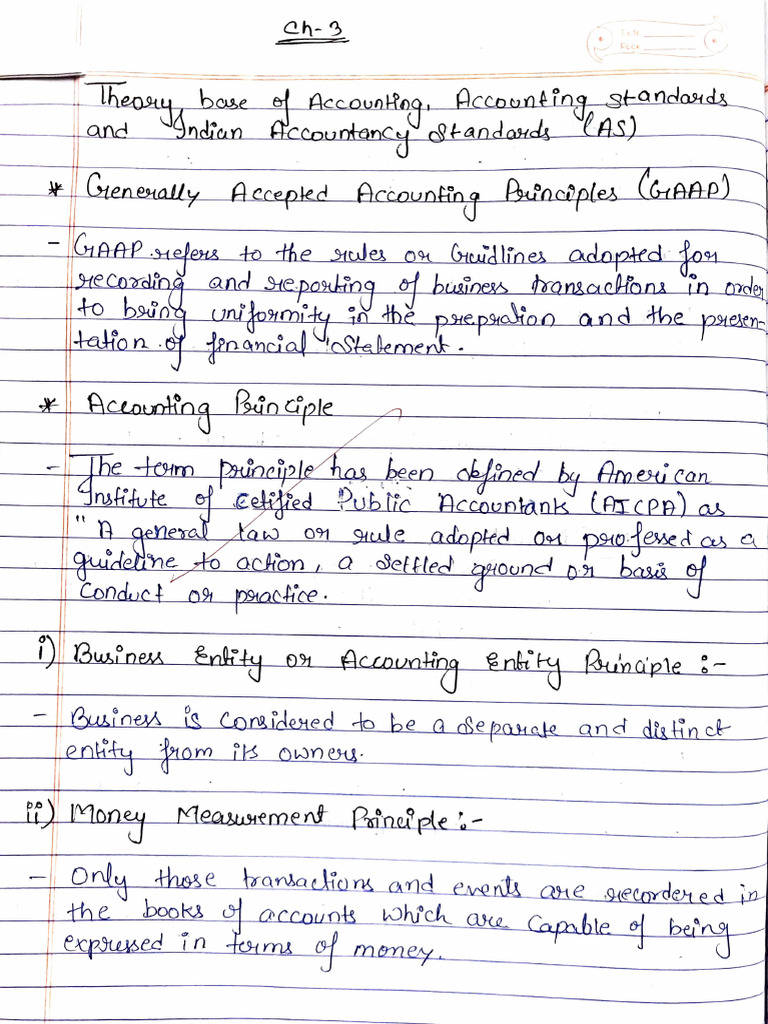 Ch-3
Theory base of Accounting, Accounting standards
and Indian Accountancy Standards (AS)
* Generally Accepted Accounting Principles (GAAP)
- GAAP refers to the rules or Guidlines adopted for
recording and reporting of business transactions in order
to bring uniformity in the prepration and the presen-
tation of financial Statement.
* Accounting Principle
- The term principle has been defined by American
Institute of Cetified Public Accountants (AICPA) as
"A general law or rule adopted or proffessed as a
guideline to action, a settled ground or basis of
Conduct or practice.
i) Business Entity or Accounting Entity Principle :-
- Business is Considered to be a separate and distinct
entity from its owners.
ii) Money Measurement Principle :-
- Only those transactions and events are recordered in
the books of accounts which are Capable of being
expressed in terms of money.